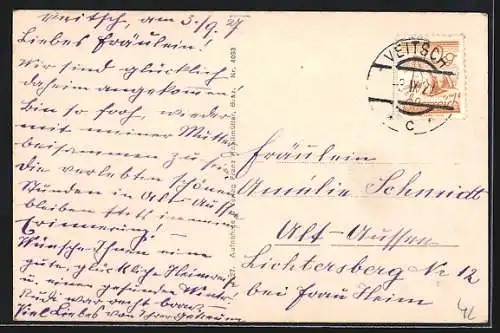 Veitsch, am 3./9. 27
Liebes Fräulein!
Wir sind glücklich
daheim angekommen!
Bin so froh, wieder
mit meiner Mutter
beisammen zu sein
Die verlebten schönen
Stunden in Alt-Aussee
bleiben stets in
Erinnerung!
Wünsche Ihnen eine
gute, glückliche Heimreise
u. einen gesunden Winter.
Rudi war recht brav.
Viel Liebes von Ihrer
Nr. 4033
VEITSCH
IX 27
c
Fräulein
Amélie Schmidt
Alt-Aussee
Lichtersberg Nr 12
bei Frau Heim